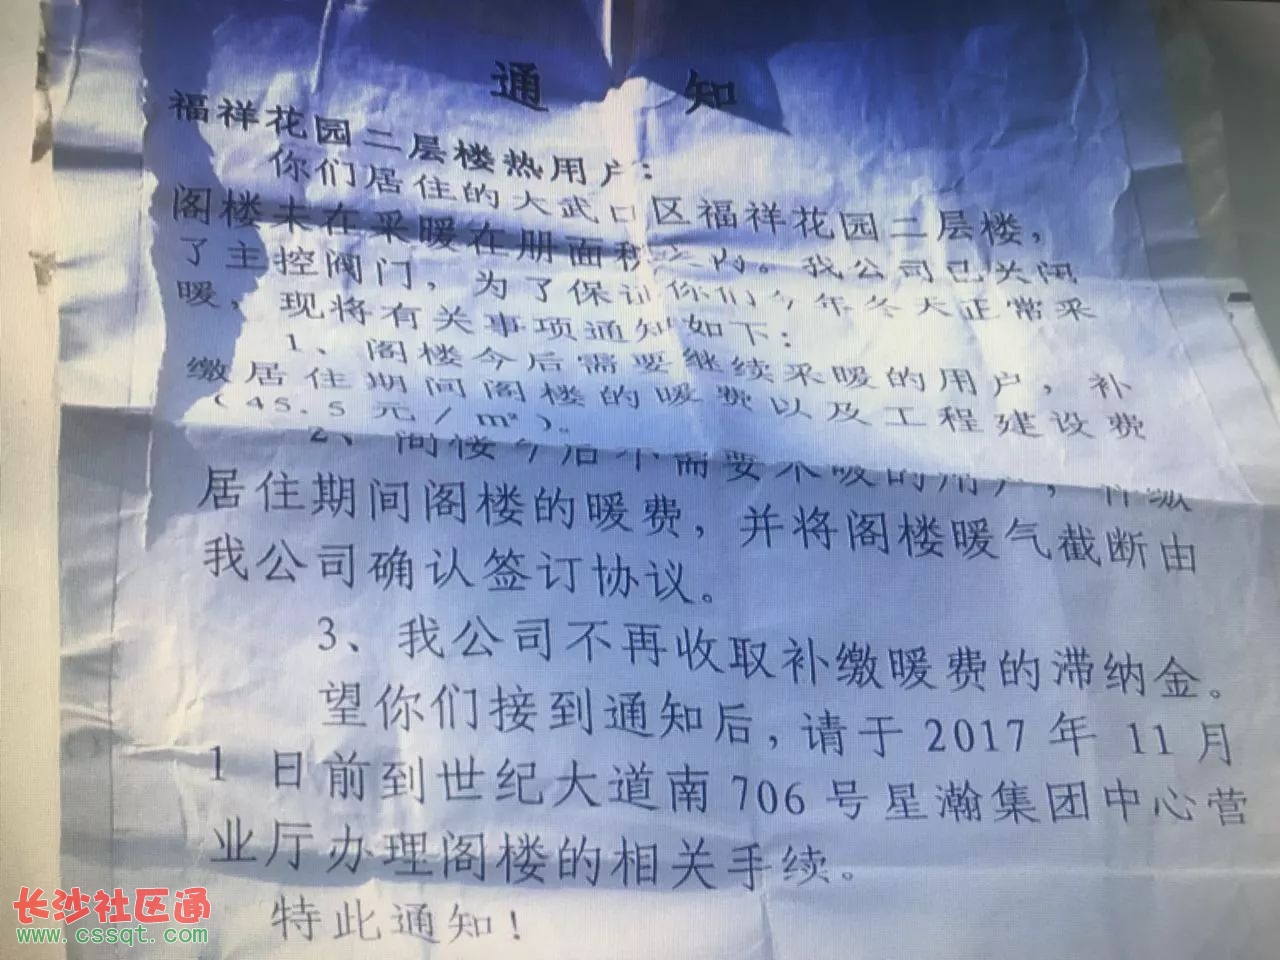 通 知
福祥花园二层楼热用户：
你们居住的大武口区福祥花园二层楼，
阁楼未在采暖在册面积之内。我公司已关闭
了主控阀门，为了保证你们今年冬天正常采
暖，现将有关事项通知如下：
1、阁楼今后需要继续采暖的用户，补
缴居住期间阁楼的暖费以及工程建设费
（45.5元/m²）。
2、阁楼今后不需要采暖的用户，补缴
居住期间阁楼的暖费，并将阁楼暖气截断由
我公司确认签订协议。
3、我公司不再收取补缴暖费的滞纳金。
望你们接到通知后，请于2017年11月
1日前到世纪大道南706号星瀚集团中心营
业厅办理阁楼的相关手续。
特此通知！
长沙社区通
www.cssqt.com